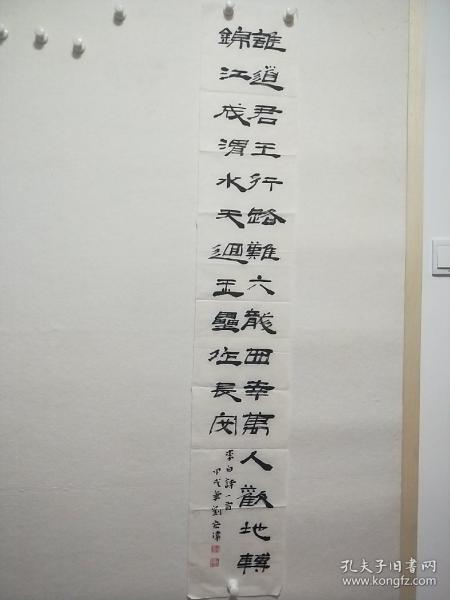 誰道君王行路難六龍西幸萬人歡地轉
錦江成渭水天迴玉壘作長安
李白詩一首
甲戌
孔夫子旧书网